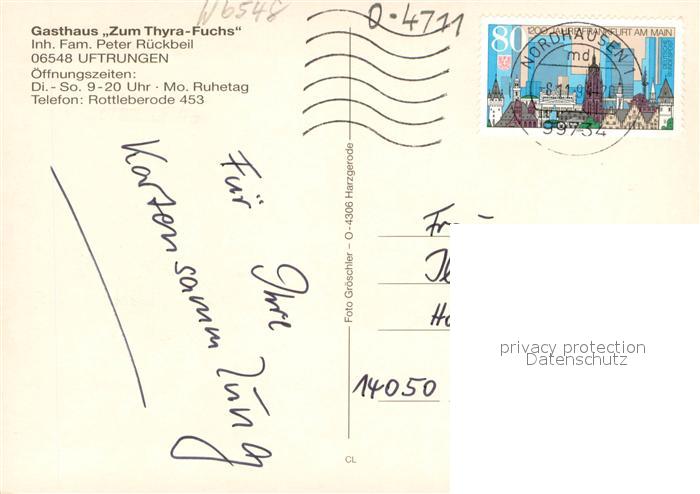 W6548
O-4711
Gasthaus „Zum Thyra-Fuchs“
Inh. Fam. Peter Rückbeil
06548 UFTRUNGEN
Öffnungszeiten:
Di. - So. 9-20 Uhr · Mo. Ruhetag
Telefon: Rottleberode 453
80
1200 JAHRE FRANKFURT AM MAIN
NORDHAUSEN 1
mdj
99734
Für
Ihre
Kartensammlung
Foto Gröschler – O-4306 Harzgerode
CL
14050
privacy protection
Datenschutz